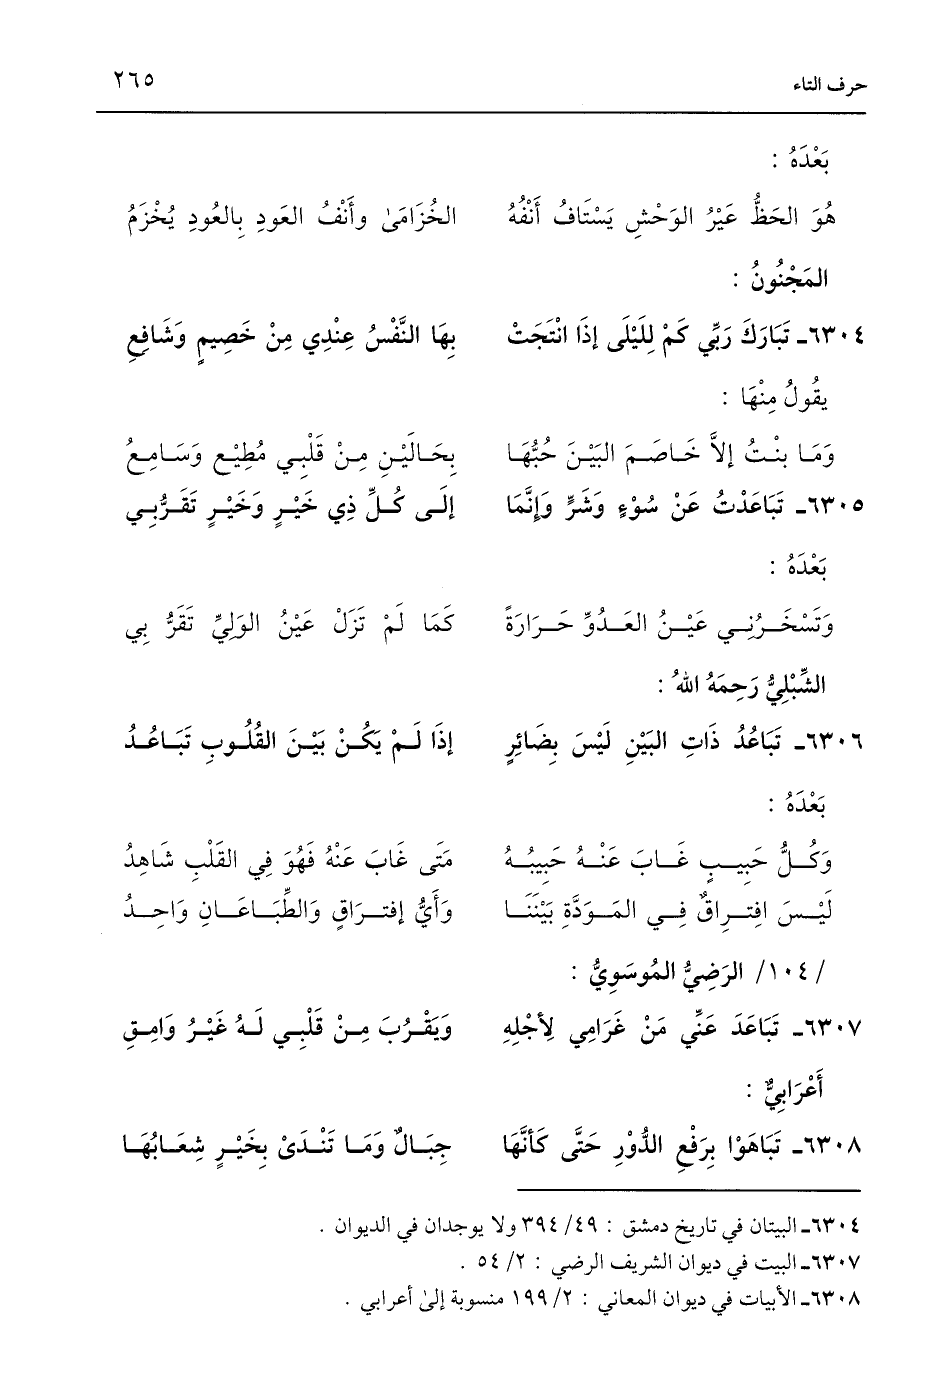 حرف التاء ٢٦٥
بَعْدَهُ :
هُوَ الحَظُّ عَيْرُ الوَحْشِ يَسْتَافُ أَنْفُهُ الخُزَامَىٰ وأَنْفُ العَودِ بِالعُودِ يُخْزَمُ
المَجْنُونُ :
٦٣٠٤ـ تَبَارَكَ رَبِّي كَمْ لِلَيْلَى إذَا انْتَجَتْ بِهَا النَّفْسُ عِنْدِي مِنْ خَصِيمٍ وَشَافِعِ
يقُولُ مِنْهَا :
وَمَا بِنْتُ إلاَّ خَاصَمَ البَيْنَ حُبُّهَا بِحَالَيْنِ مِنْ قَلْبِي مُطِيْعٍ وَسَامِعُ
٦٣٠٥ـ تَبَاعَدْتُ عَنْ سُوْءٍ وَشَرٍّ وَإِنَّمَا إلَى كُلِّ ذِي خَيْرٍ وَخَيْرٍ تَقَرُّبِي
بَعْدَهُ :
وَتَسْخَرُنِي عَيْنُ العَدُوِّ حَرَارَةً كَمَا لَمْ تَزَلْ عَيْنُ الوَلِيِّ تَقَرُّ بِي
الشِّبْلِيُّ رَحِمَهُ اللهُ :
٦٣٠٦ـ تَبَاعُدُ ذَاتِ البَيْنِ لَيْسَ بِضَائِرٍ إذَا لَمْ يَكُنْ بَيْنَ القُلُوبِ تَبَاعُدُ
بَعْدَهُ :
وَكُلُّ حَبِيبٍ غَابَ عَنْهُ حَبِيبُهُ مَتَى غَابَ عَنْهُ فَهُوَ فِي القَلْبِ شَاهِدُ
لَيْسَ افِتِراقٌ فِي المَوَدَّةِ بَيْنَنَا وَأَيُّ إفتِرَاقٍ وَالطِّبَاعَانِ وَاحِدُ
/ ١٠٤/ الرَضِيُّ المُوسَوِيُّ :
٦٣٠٧ـ تَبَاعَدَ عَنِّي مَنْ غَرَامِي لِأجْلِهِ وَيَقْرُبَ مِنْ قَلْبِي لَهُ غَيْرُ وَامِقِ
أَعْرَابِيٌّ :
٦٣٠٨ـ تَبَاهَوْا بِرَفْعِ الدُّوْرِ حَتَّى كَأنَّهَا جِبَالٌ وَمَا تَنْدَىْ بِخَيْرٍ شِعَابُهَا
٦٣٠٤ـ البيتان في تاريخ دمشق : ٤٩/ ٣٩٤ ولا يوجدان في الديوان .
٦٣٠٧ـ البيت في ديوان الشريف الرضي : ٢/ ٥٤ .
٦٣٠٨ـ الأبيات في ديوان المعاني : ٢/ ١٩٩ منسوبة إلىٰ أعرابي .